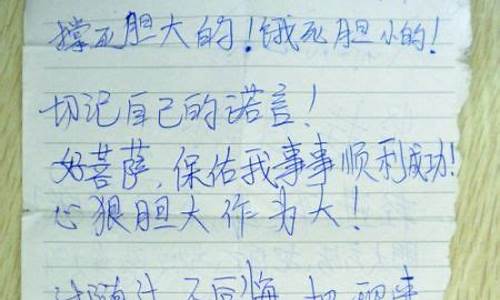 撑死胆大的！饿死胆小的！
切记自己的诺言！
好菩萨，保佑我事事顺利成功！
心狠胆大作为大！